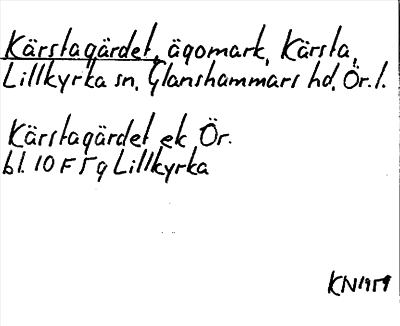 Kärstagärdet, ägomark, Kärsta,
Lillkyrka sn, Glanshammars hd, Ör. l.
Kärstagärdet ek Ör.
bl. 10 F 5 g Lillkyrka
KN 1959